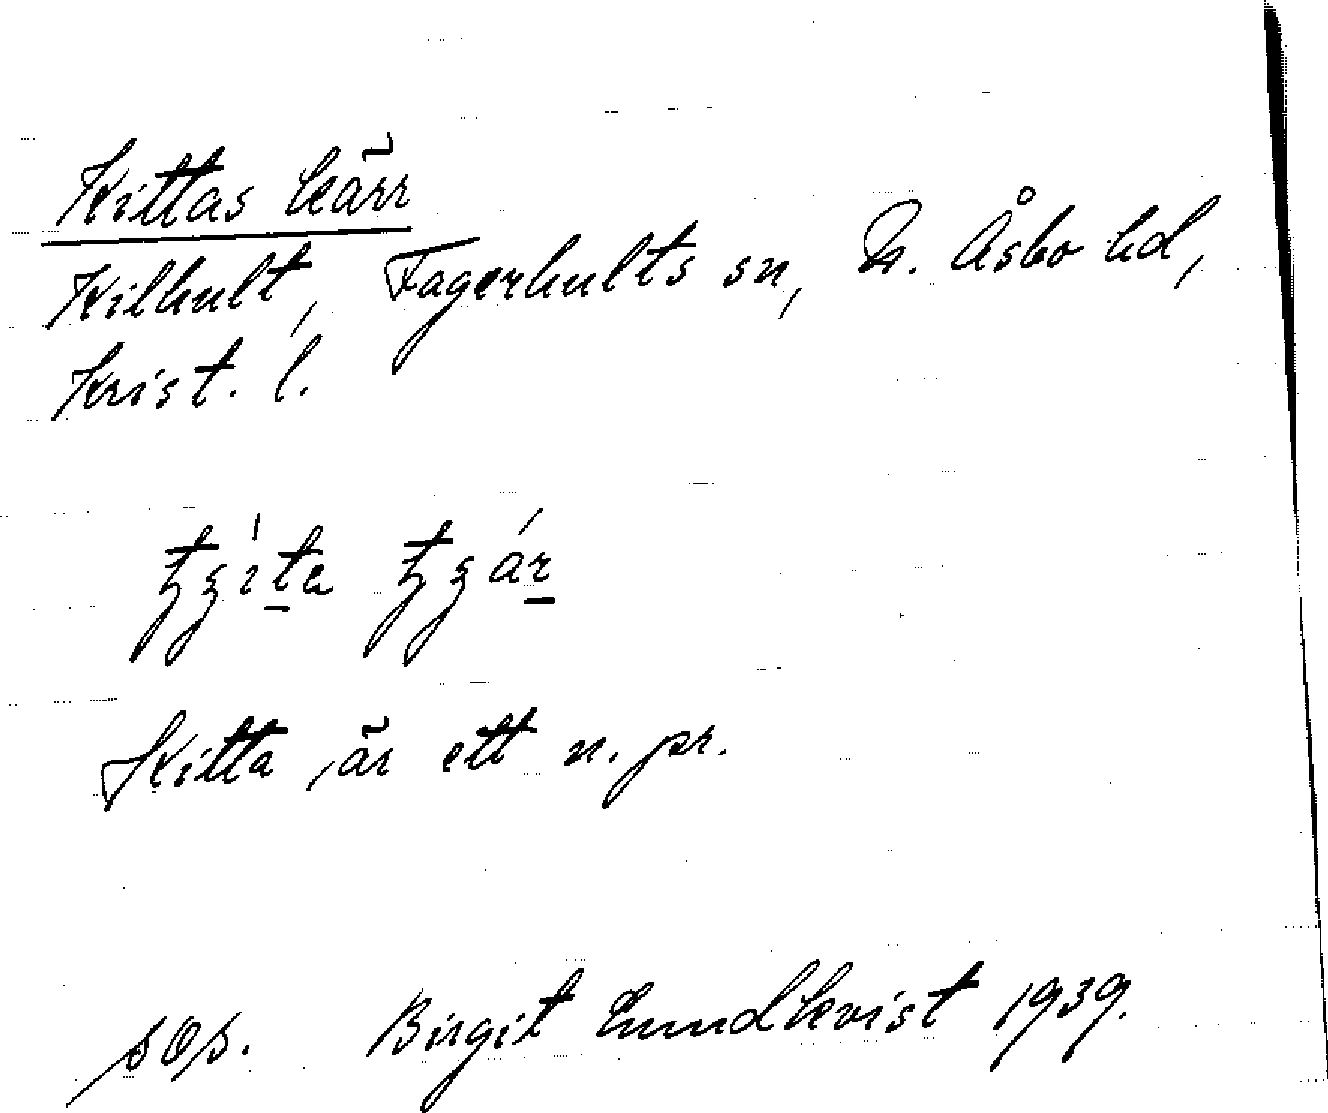 Kittas kärr
Kilhult, Fagerhults sn, N. Åsbo hd,
Krist. l.
Kitta är ett n. pr.
Birgit Lundkvist 1939.